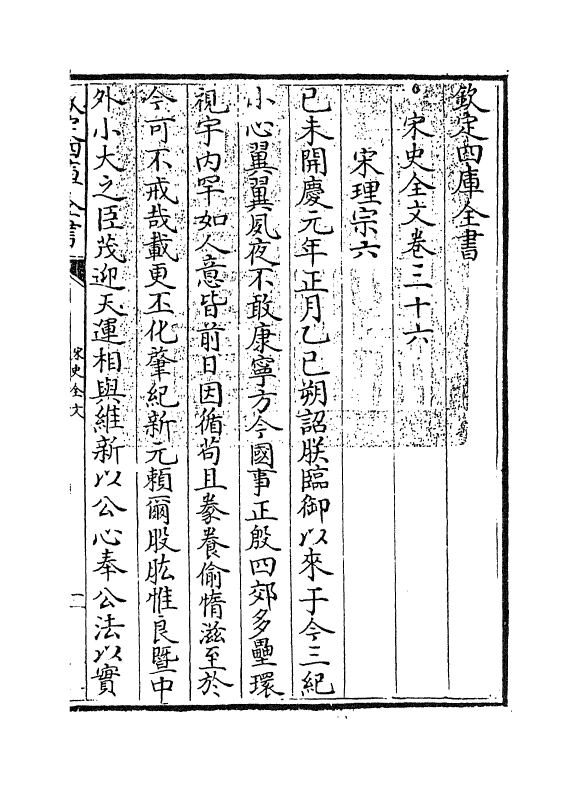 欽定四庫全書
宋史全文卷三十六
宋理宗六
己未開慶元年正月乙巳朔詔朕臨御以來于今三紀
小心翼翼夙夜不敢康寧方今國事正殷四郊多壘環
視宇內罕如人意皆前日因循茍且豢養偷惰滋至於
今可不戒哉載更丕化肇紀新元賴爾股肱惟良暨中
外小大之臣茂迎天運相與維新以公心奉公法以實
欽定四庫全書
宋史全文